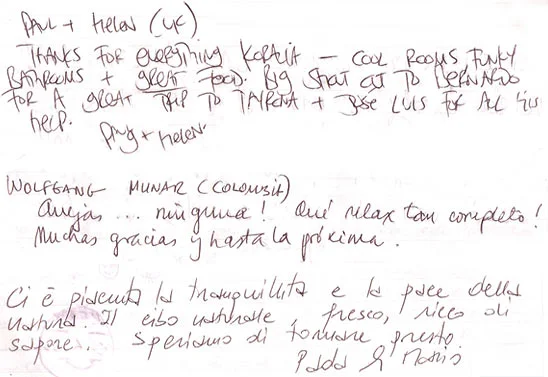 PAUL + HELEN (UK)
THANKS FOR everything KORALIA – COOL ROOMS FUNKY
BATHROOMS + GREAT FOOD. BIG SHOUT OUT TO BERNARDO
FOR A GREAT TRIP TO TAYRONA + JOSE LUIS FOR ALL HIS
HELP.
PAUL + HELEN
WOLFGANG MUNAR (COLOMBIA)
Quejas ... ninguna! Qué relax tan completo!
Muchas gracias y hasta la próxima.
Ci è piaciuta la tranquillità e la pace della
natura. Il cibo naturale, fresco, ricco di
sapore. Speriamo di tornare presto.
&